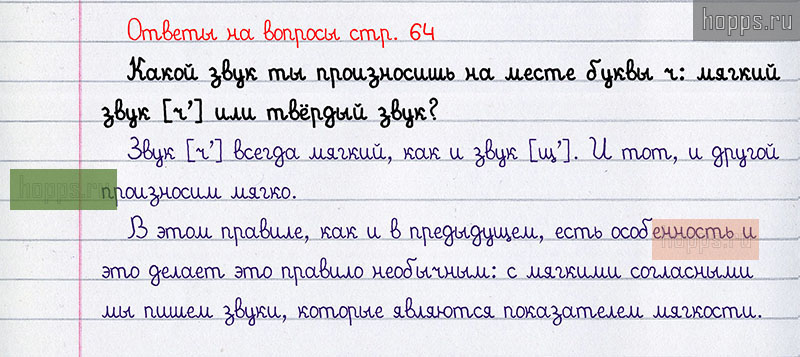 hopps.ru
Ответы на вопросы стр. 64
Какой звук ты произносишь на месте буквы ч: мягкий
звук [ч’] или твёрдый звук?
Звук [ч’] всегда мягкий, как и звук [щ’]. И тот, и другой
hopps.ru
произносим мягко.
В этом правиле, как и в предыдущем, есть особенность и
hopps.ru
это делает это правило необычным: с мягкими согласными
мы пишем звуки, которые являются показателем мягкости.